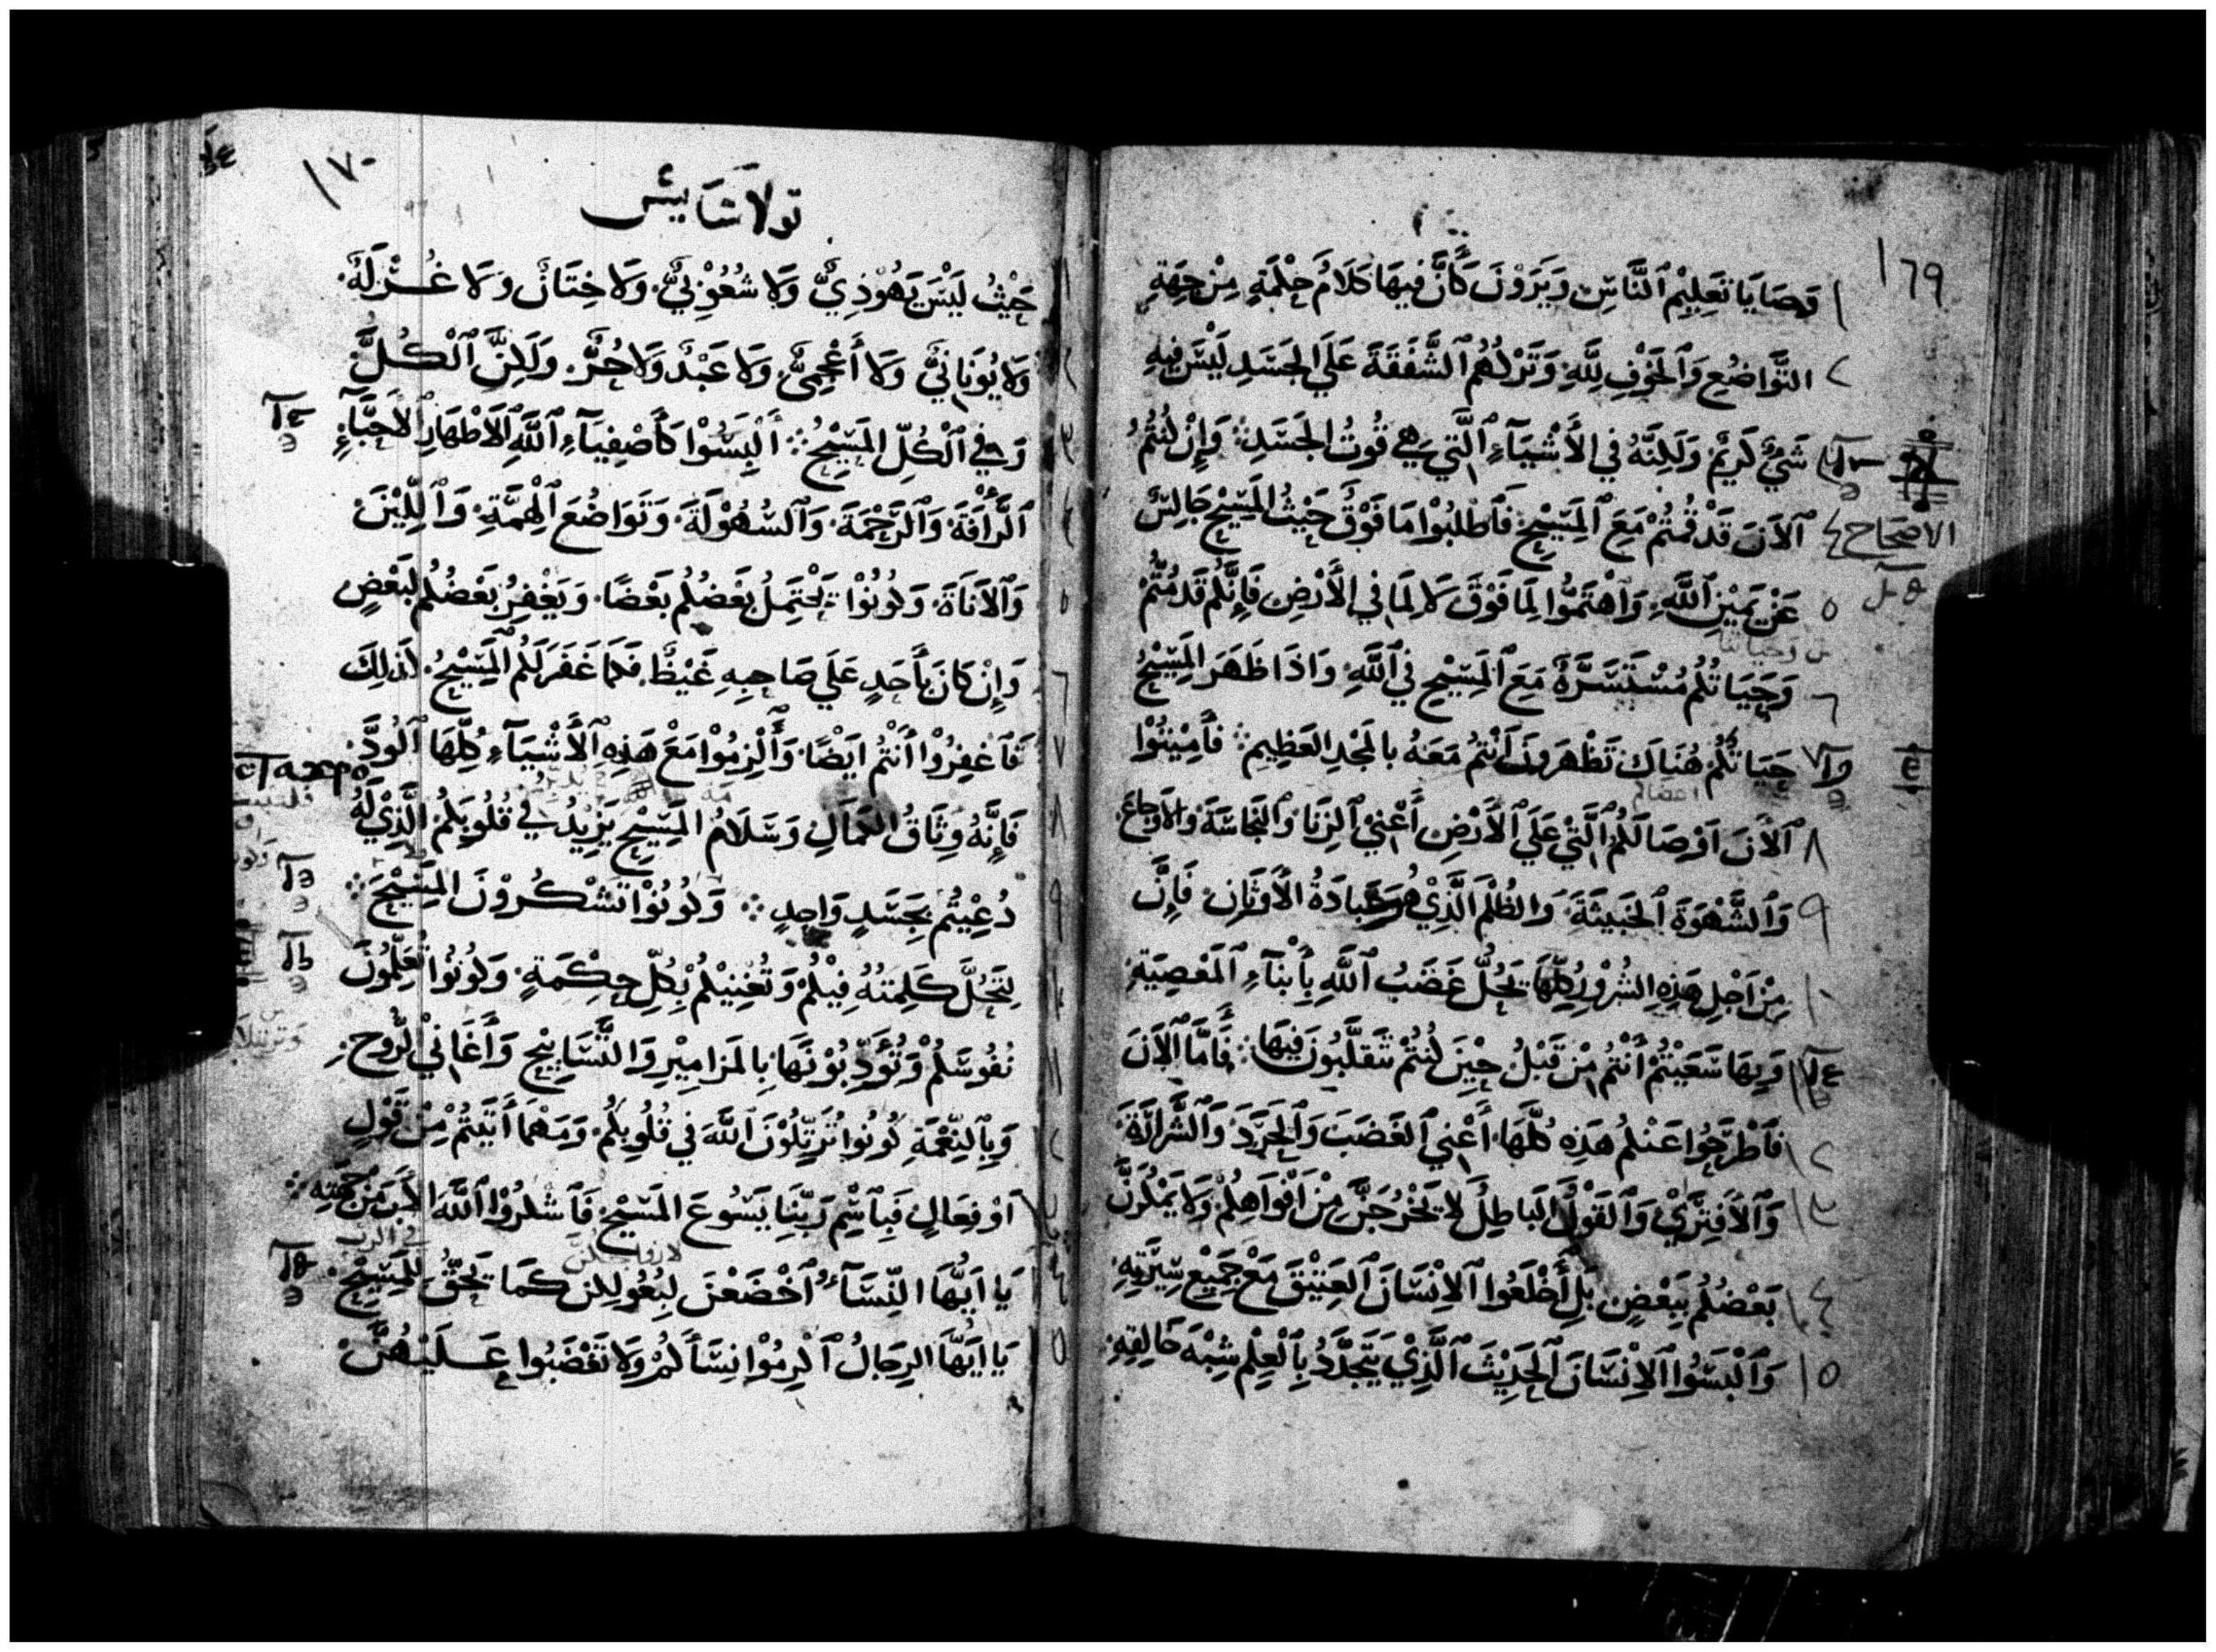 169
١ وَصَايَا تَعلِيْمِ ٱلنَّاسِ وَيَرَوْنَ كَأَنَّ فِيهَا كَلَامُ حِكْمَةٍ مِنْ جِهَةِ
٢ التَّوَاضُعِ وَٱلخَوْفِ لِلَّهِ وَتَرْكُهُمُ ٱلشَّفَقَةَ عَلَي الجَسَدِ لَيْسَ فِيهِ
شَيْءٌ كَرِيْمٌ وَلَكِنَّهُ في الأَشْيَآءِ ٱلَّتِي هِي قُوتُ الجَسَدِ ؞ وَإِنْ كُنتُمُ
الاصحاح ٤ ٱلآنَ قَدْ قُمتُمْ مَعَ ٱلمَسِيْحِ فَٱطْلُبُوْا مَا فَوْقَ حَيْثُ المَسِيْح جَالِسٌ
٥ عَنْ يَمِيْنِ ٱللَّهِ وَٱهْتَمُّوا لِمَا فَوْقَ لَا لِمَا في الأَرْضِ فَإِنَّكُم قَد مُتُّمْ
٦ وَحَيَاتُكُم مُسْتَسِرَّةٌ مَعَ ٱلمَسِيْحِ فِي ٱللَّهِ وَاذَا ظَهَرَ المَسِيْحُ
٧ حَيَاتُكُمْ هُنَاكَ تَظْهَرونَ أَنْتُمُ مَعَهُ بالمَجْدِ العَظِيمِ ؞ فَأَمِيْتُوْا
اعضاكم
٨ ٱلآنَ اَوْصَالَكُمُ ٱلَّتِيْ عَلَي ٱلأَرْضِ أَعْنِيْ ٱلزِنَا وَٱلنَّجَاسَةَ وَالأَوجَاعَ
٩ وَٱلشَّهْوَةَ ٱلخَبِيثَةَ وَالظُلْمَ الَّذِيْ هُوَ عِبَادَةُ الأَوثَانِ فَإِنَّ
١٠ مِنْ اَجْلِ هَذِهِ الشُرُوْرِ كُلِّهَا يَحُلُّ غَضَبُ ٱللَّهِ بِأَبْنَآءِ ٱلمَعْصِيَةِ
وَبِهَا سَعَيْتُمْ أَنْتُم مِنْ قَبْلُ حِيْنَ كُنتُمْ تَتَقَلَّبُونَ فِيهَا ؞ فَأَمَّا ٱلآنَ
١٢ فَٱطْرَحُوا عَنكُم هَذِهِ كُلَّهَا أَعْنِي ٱلغَضَبَ وَٱلحَرَدَ وَٱلشَّرَارَةَ
١٣ وَٱلاَفتِرَيْ وَٱلقَوْلُ البَاطِلُ لَا تَخْرُجَنَّ مِنْ اَفْوَاهِكُمْ وَلَا يَمْكُرَنَّ
١٤ بَعْضُكُم بِبَعْضٍ بَلِ أَخْلَعُوا ٱلاِنْسَانَ ٱلعَتِيْقَ مَعَ جَمِيْعِ سِيْرَتِهِ
١٥ وَٱلْبَسُوا ٱلاِنْسَانَ ٱلحَدِيْثَ ٱلَّذِيْ يَتَجَدَّدُ بِٱلْعِلْمِ شِبْهَ خَالِقِهِ
١٧٠
قولاسايس
١ حَيْثُ لَيْسَ يَهُوْدِيٌّ وَلَا شُعُوْبِيٌّ وَلَا خِتَانٌ وَلَا غُرْلَةٌ
٢ وَلَا يُونَانِيٌّ وَلَا أَعْجَمِيٌّ وَلَا عَبْدٌ وَلَا حُرٌّ وَلَكِنَّ ٱلْكُلَّ
٣ وَفِي ٱلْكُلِّ المَسِيْحُ ؞ أَلْبَسُوْا كَأَصْفِيَآءِ ٱللَّهِ ٱلاَطْهَارِ ٱلاَحِبَّآءِ
٤ ٱلرَّأْفَةَ وَٱلرَّحْمَةَ وَٱلسُّهُوْلَةَ وَتَوَاضُعَ ٱلْهِمَّةِ وَٱللِّيْنَ
٥ وَٱلآَنَاةَ وَكُونُوْا يَحْتَمِلُ بَعْضُكُم بَعْضًا وَيَغْفِرُ بَعْضُكُم لِبَعْضٍ
٦ وَإِنْ كَانَ بِأَحَدٍ عَلَي صَاحِبِهِ غَيْظٌ فَكَمَا غَفَرَ لَكُم ٱلمَسِيْحُ كَذَلِكَ
٧ فَٱغفِرُوْا أَنْتُم اَيْضًا وَأَلْزِمُوْا مَعَ هَذِهِ ٱلأَشْيَآءِ كُلِّهَا ٱلوُدَّ
٨ فَإِنَّهُ وَثَاقُ الكَمَالِ وَسَلَامُ المَسِيْحِ يَزِيْدُ فِي قُلُوبِكُمُ الَّذِيْ لَهُ
٩ دُعِيْتُم بِجَسَدٍ وَاحِدٍ ؞ وَكُونُوْا تَشْكُرُوْنَ المَسِيْحَ ؞
١٠ لِتَحُلَّ كَلِمَتُهُ فِيْكُم وَتُغْنِيْكُم بِكُلِّ حِكْمَةٍ وَكُونُوا تُعَلِّمُونَ
١١ نُفُوسَكُمْ وَتُؤَدِّبُوْنَهَا بِالمَزَامِيْرِ وَالتَّسَابِيْحِ وَأَغَانِيْ الرُّوحِ
وَبِٱلنِّعْمَةِ كُونُوا تُرَتِّلُوْنَ ٱللَّهَ في قُلُوبِكُم وَمَهْمَا أَتَيْتُم مِنْ قَوْلٍ
اَوْ فِعَالٍ فَبِٱسْمِ رَبِّنَا يَسُوعَ المَسِيْحِ فَٱشْكُرُوْا ٱللَّهَ الأَبَ مِنْ جِهَتِهِ ؞
لازواجكن في الرب
يَا اَيُّهَا النِّسَآءُ ٱخْضَعْنَ لِبُعُولِكن كَمَا يَحِقُّ لِلمَسِيْحِ
يَا اَيُّهَا الرِجَالُ ٱكْرِمُوْا نِسَآءَكُمْ وَلَا تَغْضَبُوا عَلَيْهُنَّ